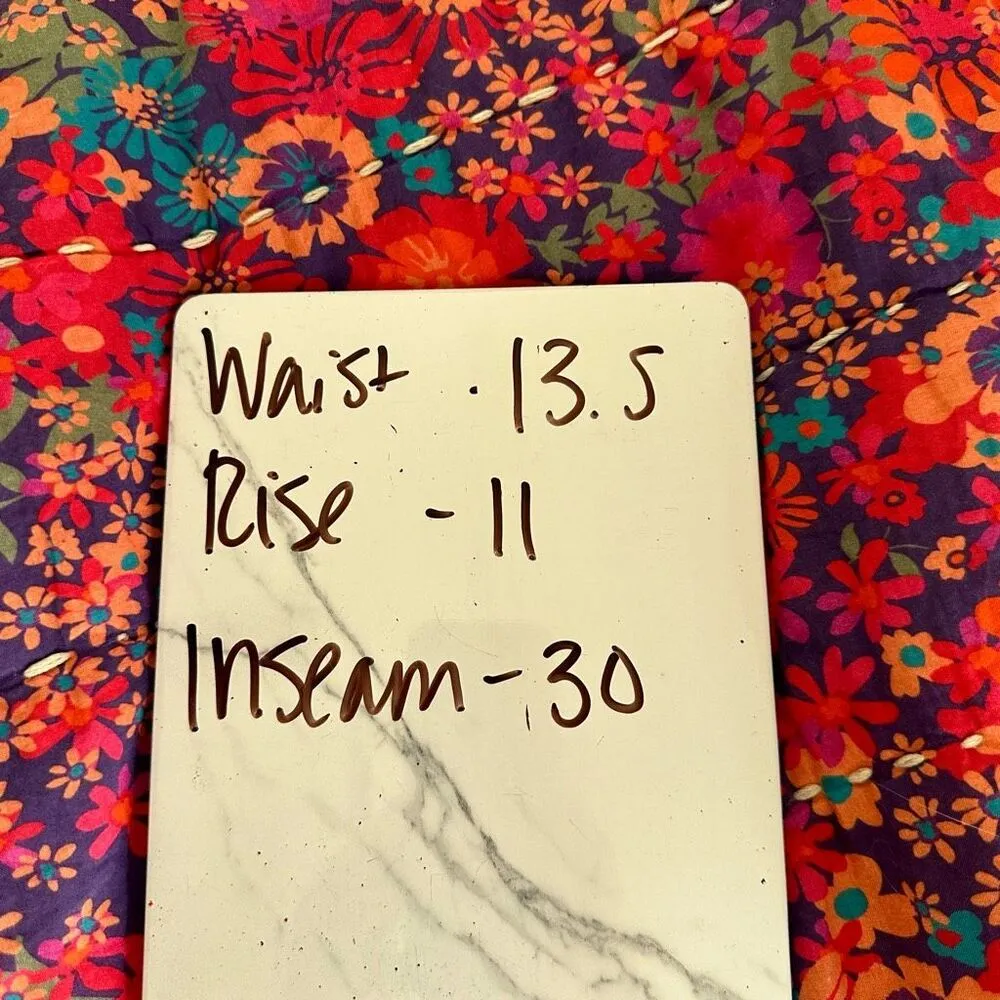 Waist - 13.5
Rise - 11
Inseam - 30